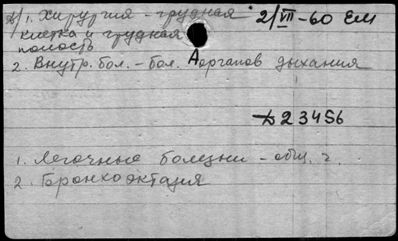 1. Хирургия - грудная 2/VII-60 Ем
клетка и грудная
полость
2. Внутр. бол. - бол. органов дыхания
23456
1. Легочные болезни - общ. ч.
2. Бронхоэктазия